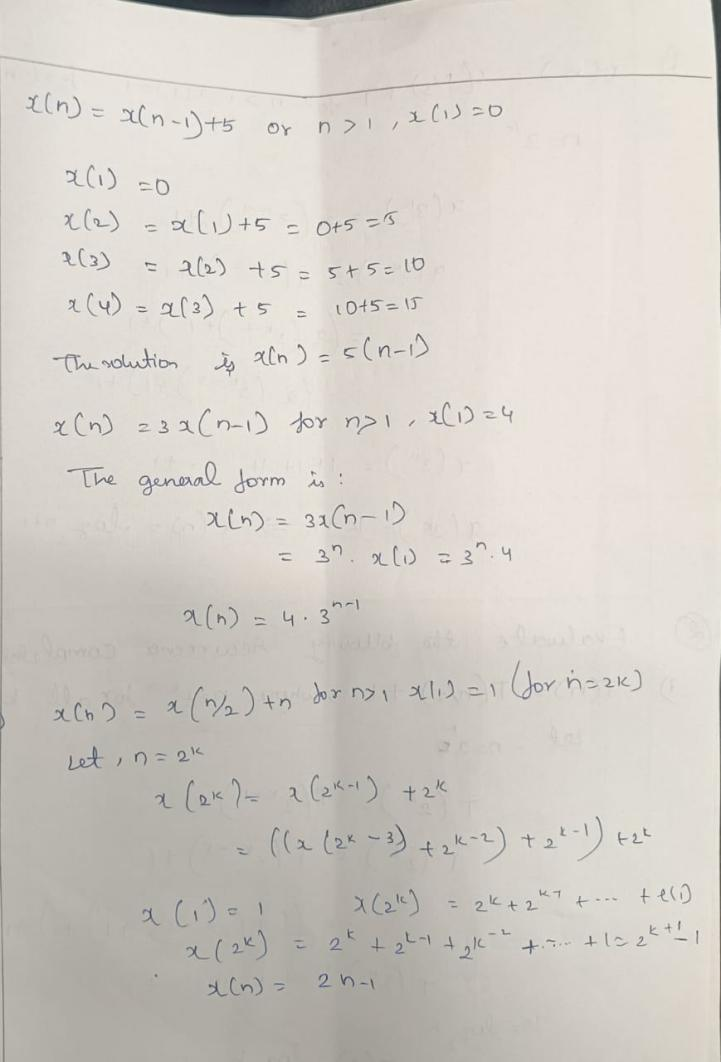 x(n) = x(n-1)+5 or n>1, x(1)=0
x(1) =0
x(2) = x(1)+5 = 0+5=5
x(3) = x(2) +5 = 5+5=10
x(4) = x(3) +5 = 10+5=15
The solution is x(n) = 5(n-1)
x(n) = 3x(n-1) for n>1, x(1)=4
The general form is :
x(n) = 3x(n-1)
= 3ⁿ. x(1) = 3ⁿ.4
x(n) = 4.3ⁿ⁻¹
x(n) = x(n/2)+n for n>1 x(1)=1 (for n=2k)
Let, n=2ᵏ
x(2ᵏ)= x(2ᵏ⁻¹) +2ᵏ
= ((x(2ᵏ-3)+2ᵏ⁻²)+2ᵏ⁻¹)+2ᵏ
x(1)=1 x(2ᵏ) = 2ᵏ+2ᵏ⁻¹+...
x(2ᵏ) = 2ᵏ+2ᵏ⁻¹+2ᵏ⁻²+....+1=2ᵏ⁺¹-1
x(n) = 2n-1